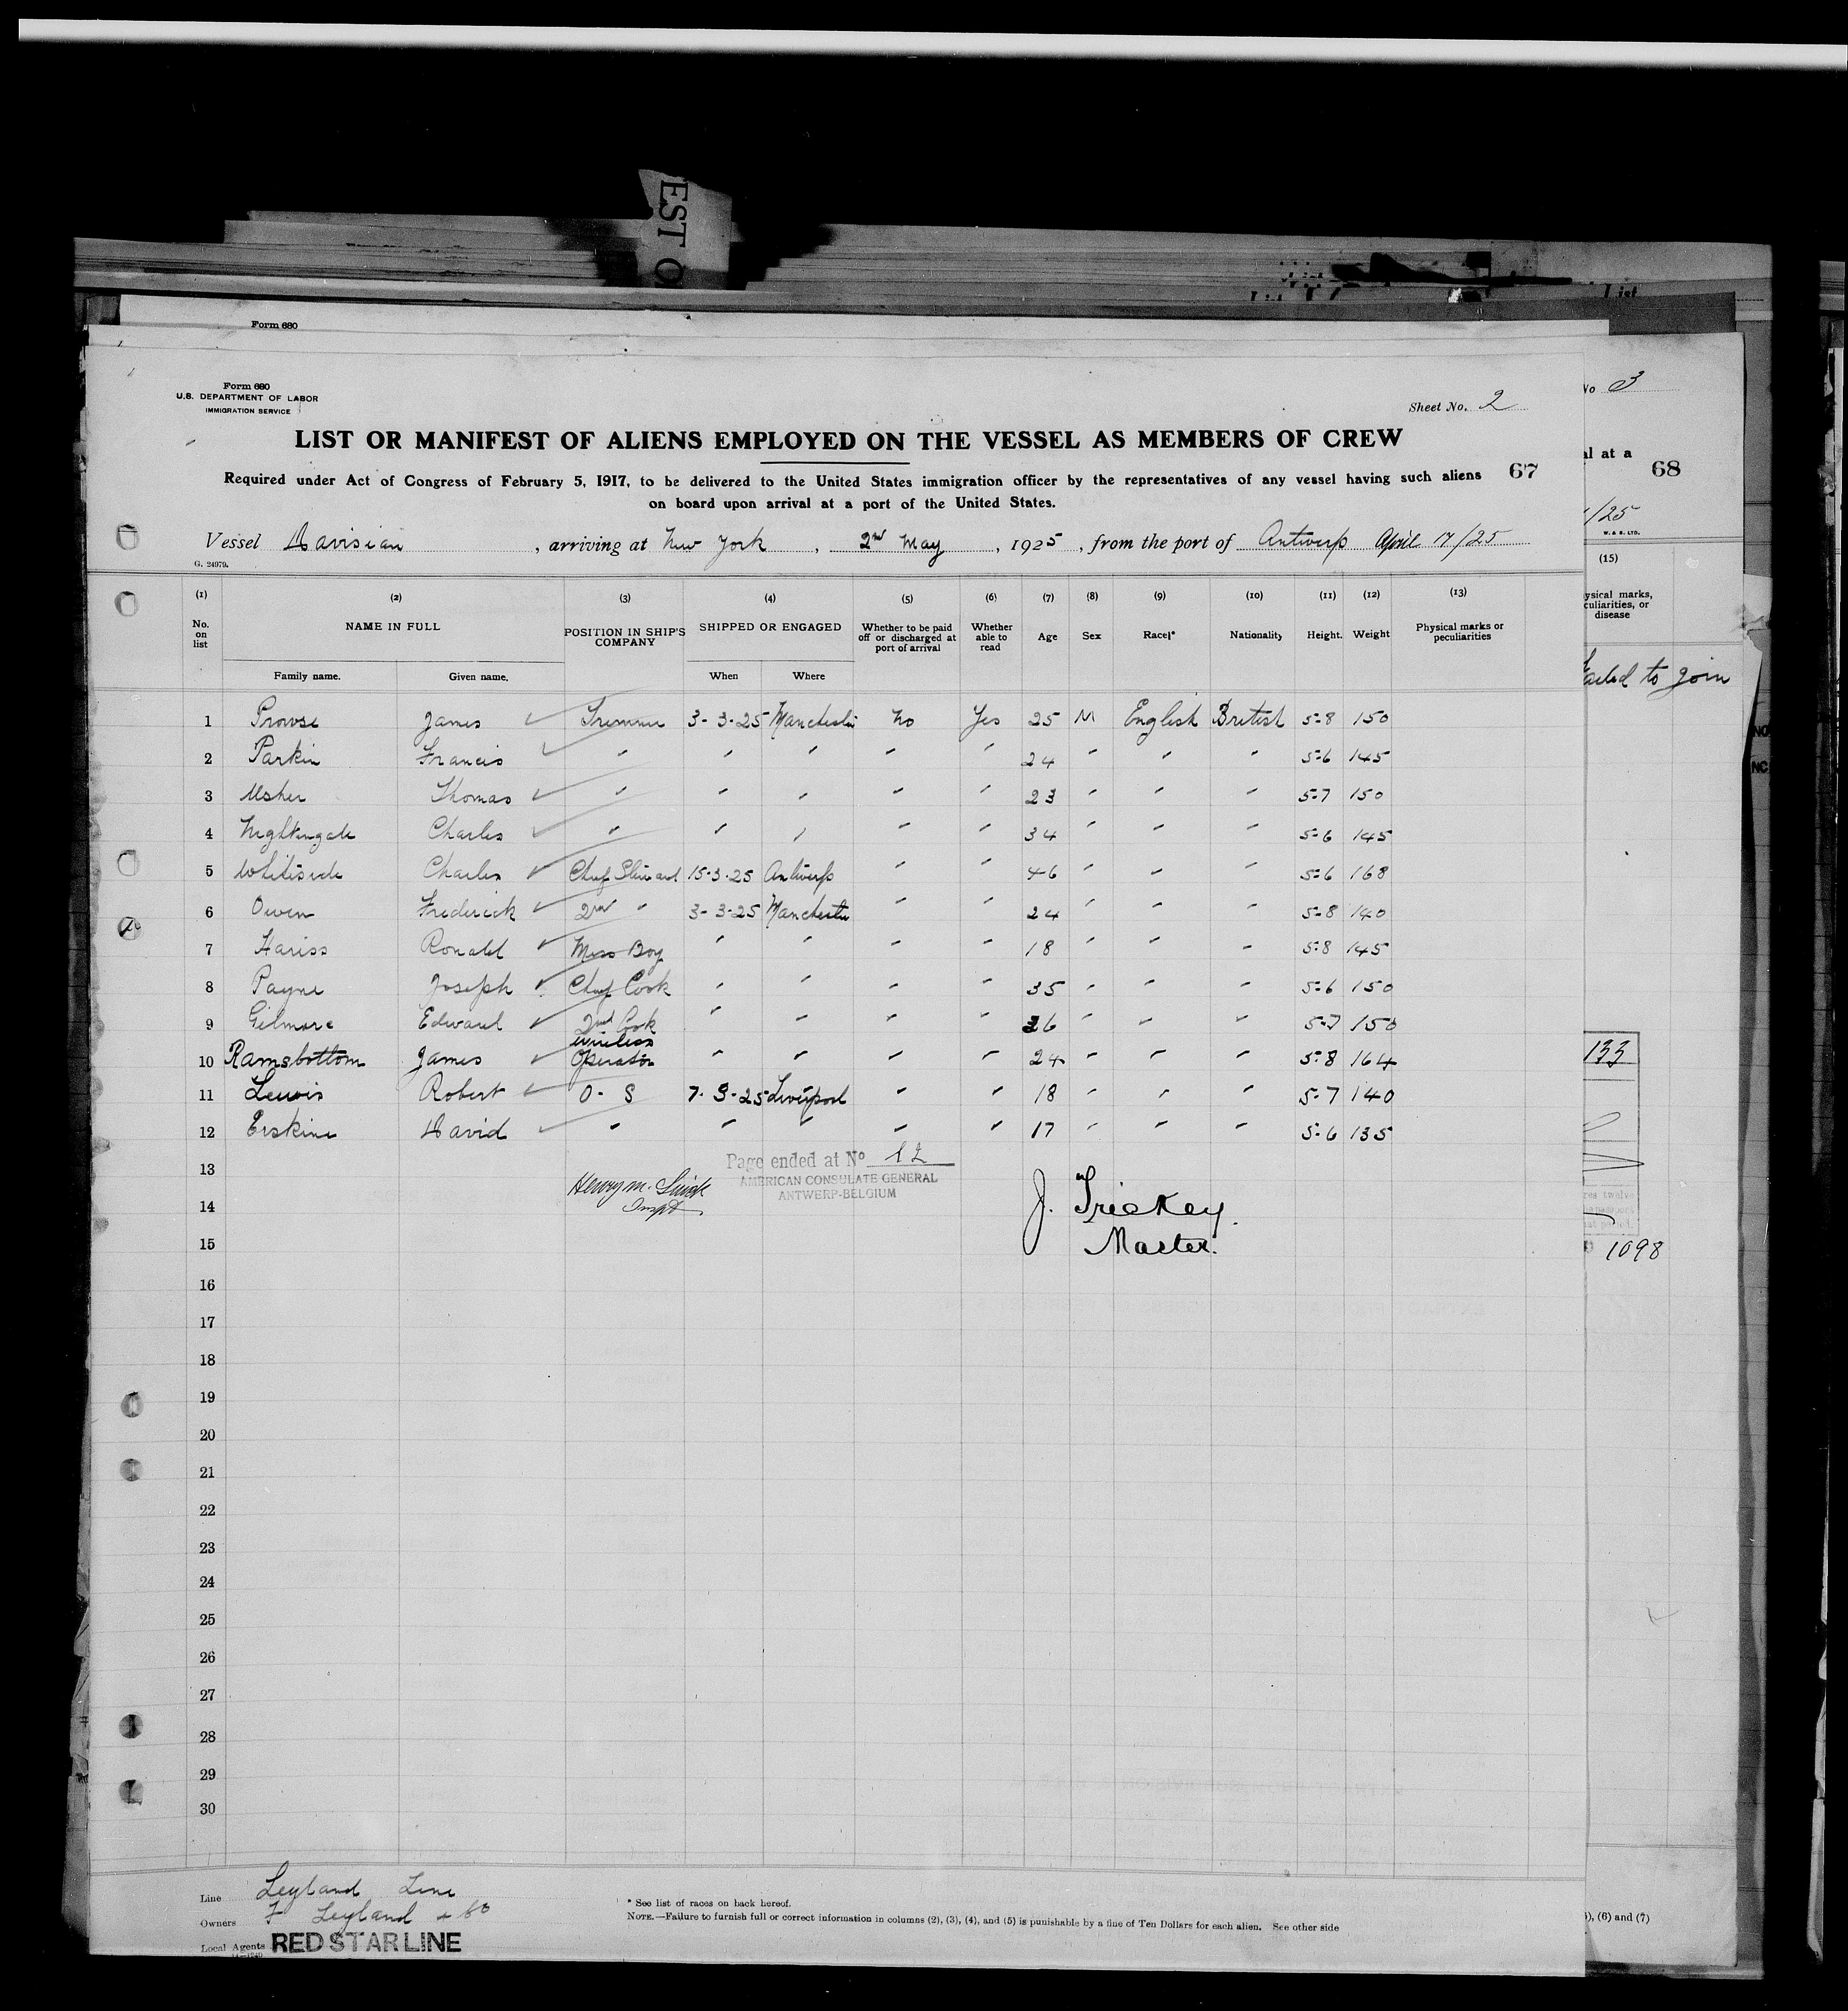 EST O
List
Form 680
Form 680
U.S. DEPARTMENT OF LABOR
IMMIGRATION SERVICE
Sheet No. 2
No 3
LIST OR MANIFEST OF ALIENS EMPLOYED ON THE VESSEL AS MEMBERS OF CREW
al at a
67
68
Required under Act of Congress of February 5, 1917, to be delivered to the United States immigration officer by the representatives of any vessel having such aliens
on board upon arrival at a port of the United States.
Vessel Davisian , arriving at New York , 2nd May , 1925 , from the port of Antwerp April 17/25
/25
W. & S. LTD.
G. 24979.
(1) (2) (3) (4) (5) (6) (7) (8) (9) (10) (11) (12) (13)
(15)
No. on list NAME IN FULL POSITION IN SHIP'S COMPANY SHIPPED OR ENGAGED Whether to be paid off or discharged at port of arrival Whether able to read Age Sex Race* Nationality Height. Weight Physical marks or peculiarities
ysical marks,
culiarities, or
disease
Family name. Given name. When Where
ailed to join
1 Prowse James Trimmer 3-3-25 Manchester No Yes 25 M English British 5-8 150
2 Parkin Francis " " " " " 24 " " " 5-6 145
3 Usher Thomas " " " " " 23 " " " 5-7 150
4 Nightingale Charles " " " " " 34 " " " 5-6 145
5 Whiteside Charles Chief Steward 15-3-25 Antwerp " " 46 " " " 5-6 168
6 Owen Frederick 2nd " 3-3-25 Manchester " " 24 " " " 5-8 140
7 Hariss Ronald Mess Boy " " " " 18 " " " 5-8 145
8 Payne Joseph Chief Cook " " " " 35 " " " 5-6 150
9 Gilmore Edward 2nd Cook " " " " 26 " " " 5-7 150
10 Ramsbottom James Wireless Operator " " " " 24 " " " 5-8 164
11 Lewis Robert O-S 7-3-25 Liverpool " " 18 " " " 5-7 140
12 Erskine David " " " " " 17 " " " 5-6 135
133
13
Page ended at No 12
AMERICAN CONSULATE GENERAL
ANTWERP-BELGIUM
Henry M.
Inspt
J. Trickey
Master.
14
15
1098
16
17
18
19
20
21
22
23
24
25
26
27
28
29
30
Line Leyland Line
Owners F Leyland & Co
Local Agents RED STAR LINE
* See list of races on back hereof.
NOTE.—Failure to furnish full or correct information in columns (2), (3), (4), and (5) is punishable by a fine of Ten Dollars for each alien. See other side
), (6) and (7)